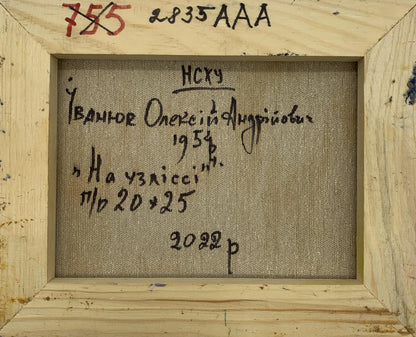 755 2835ААА
НСХУ
Іванюк Олексій Андрійович
1954р
"На узліссі"
п/о 20*25
2022р